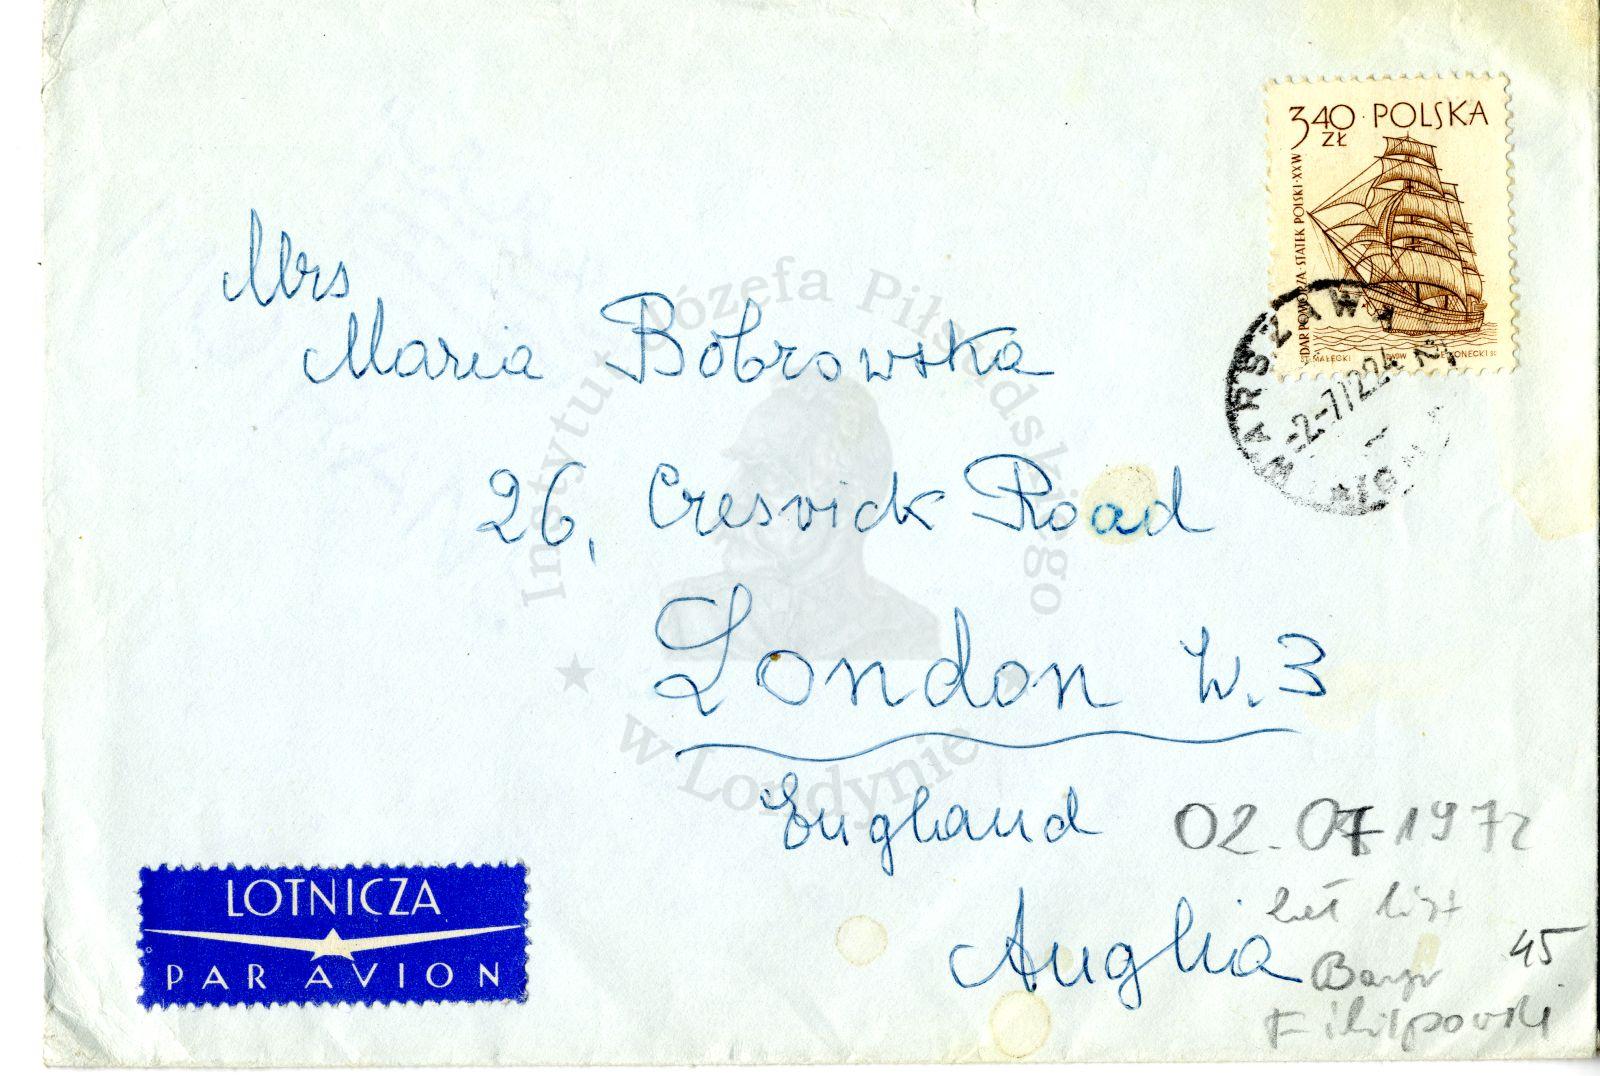 3,40 ZŁ POLSKA
DAR POMORZA · STATEK POLSKI · XX W
ST. MAŁECKI
WARSZAWA
-2-7 72 24
Mrs
Maria Bobrowska
26, Cresvick Road
London W. 3
England
Anglia
LOTNICZA
PAR AVION
02.07.1972
list
45
Filipowski
Instytut Józefa Piłsudskiego
w Londynie